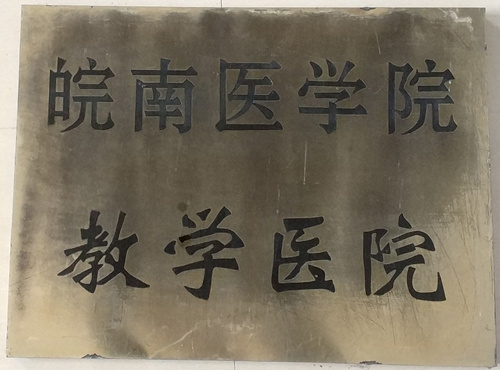 皖南医学院
教学医院